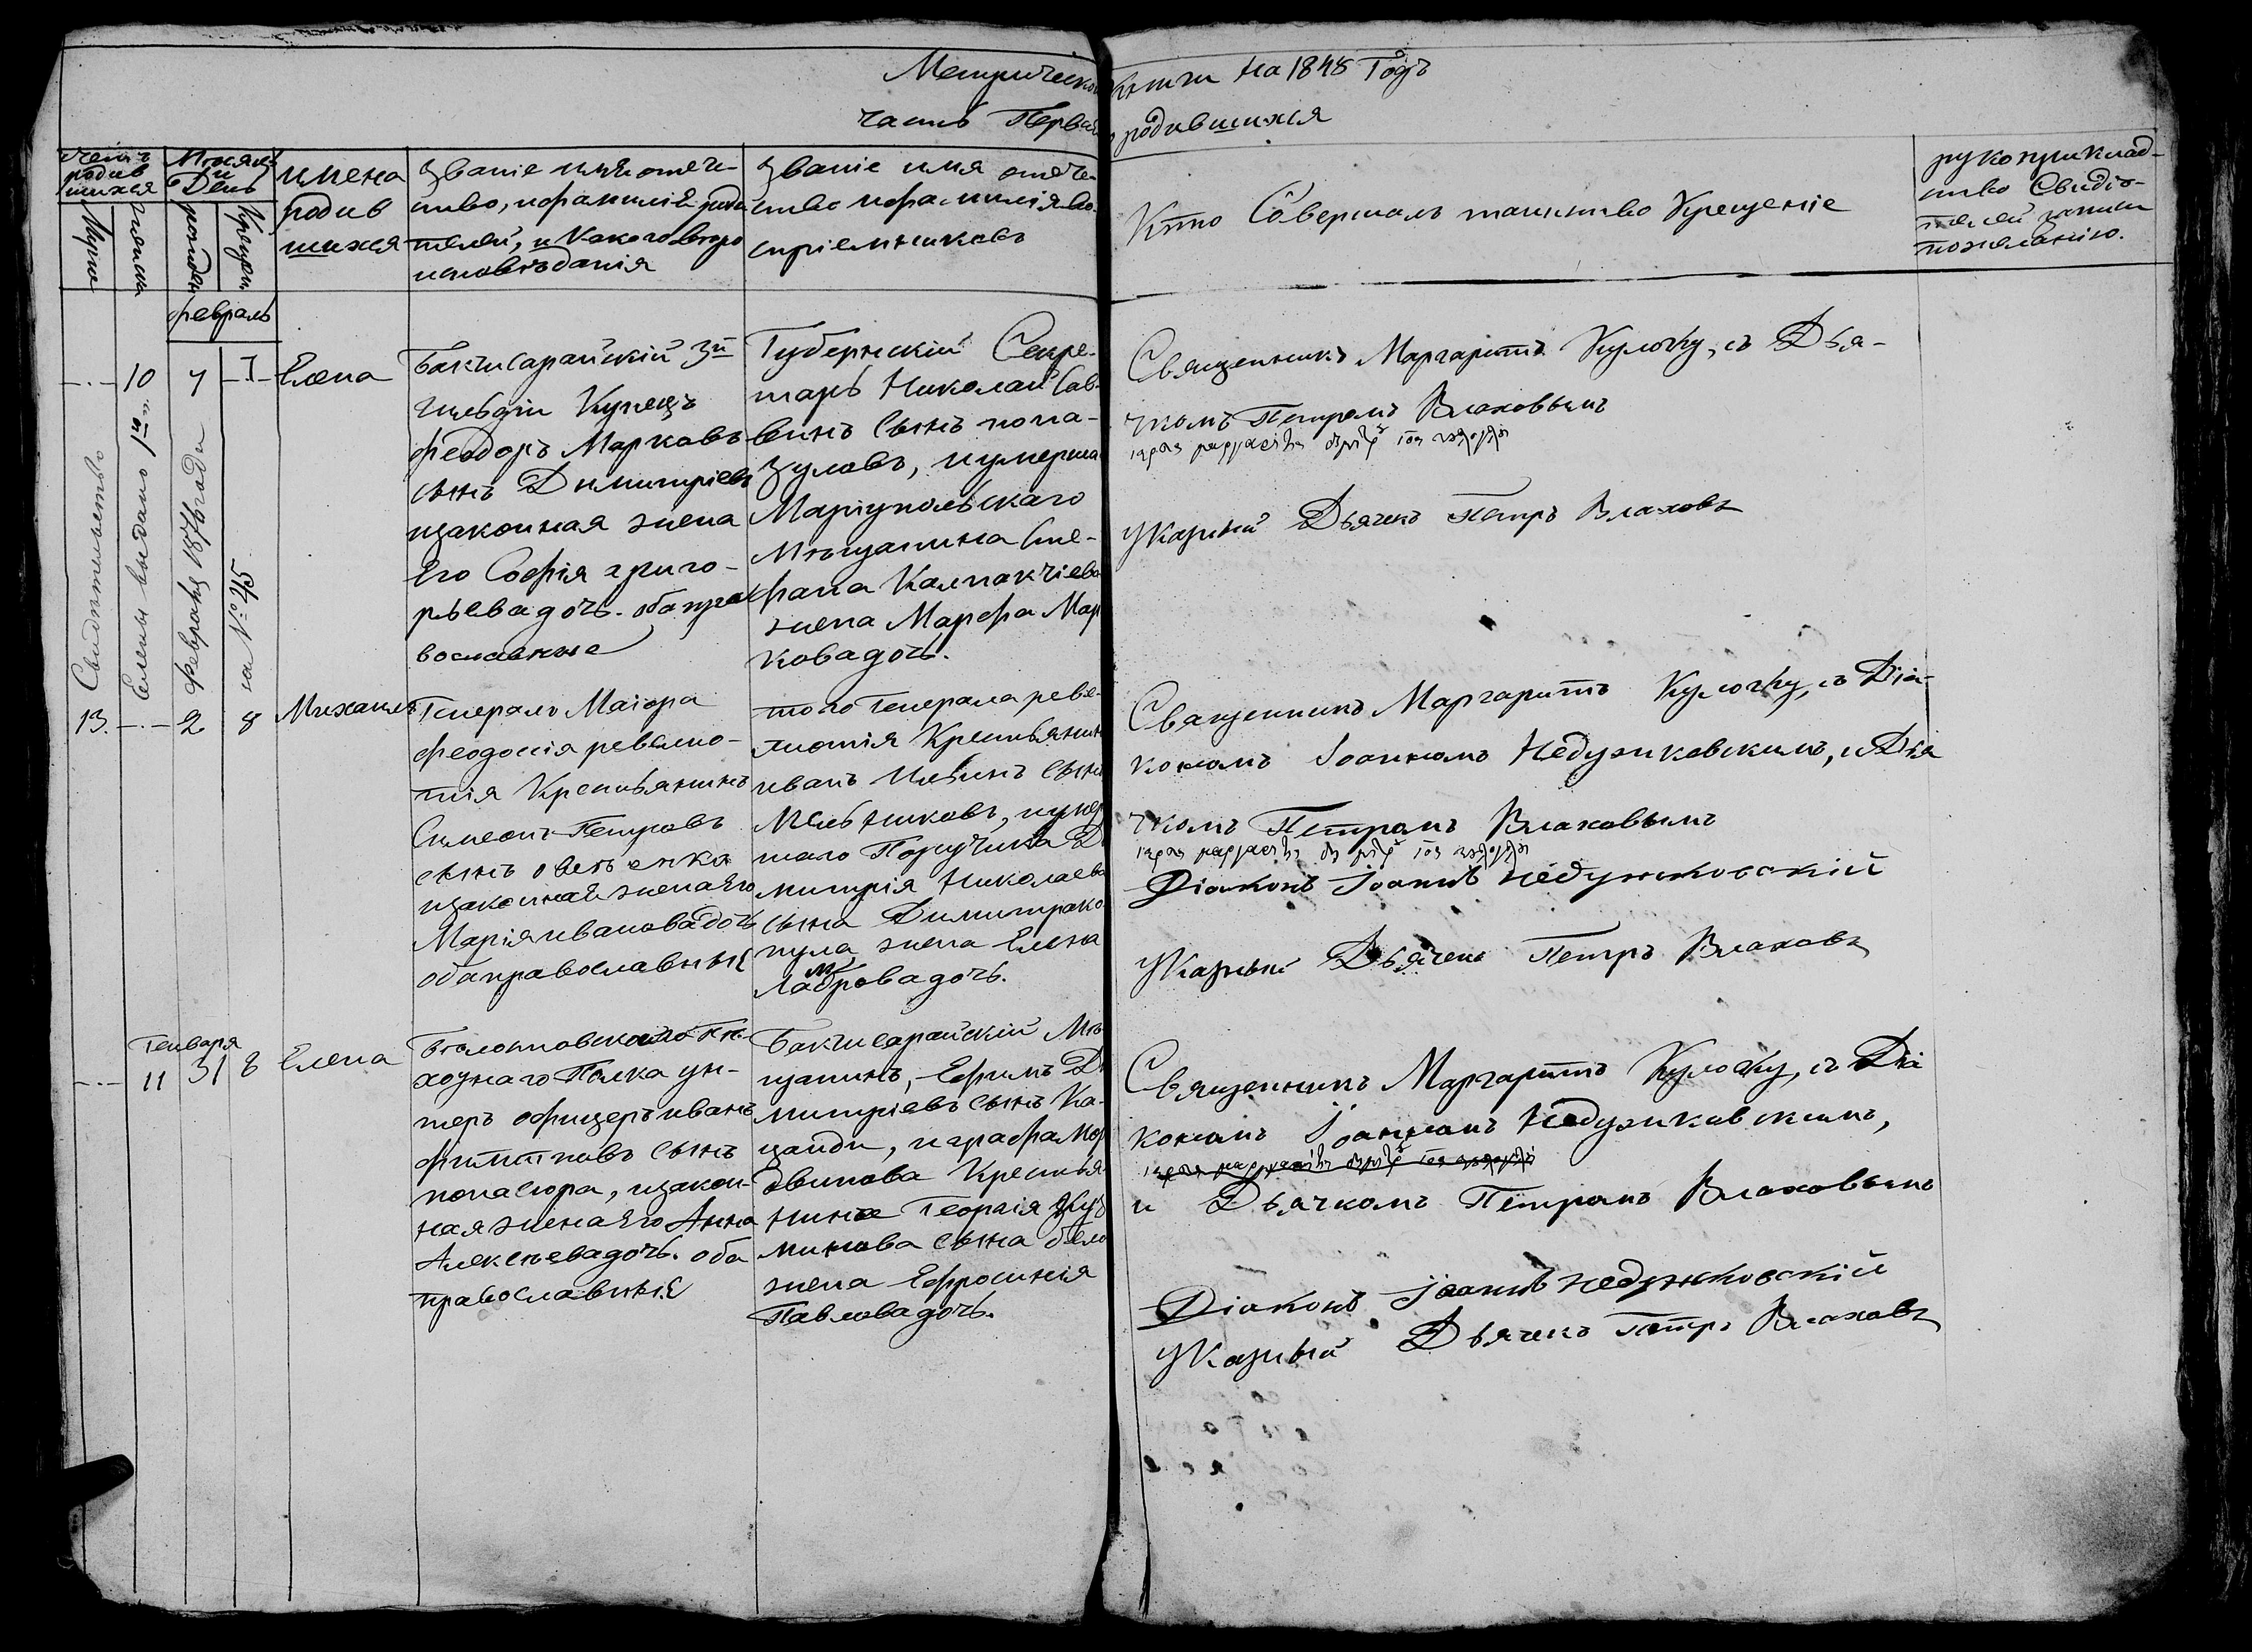 Метрической книги на 1848 Годъ
часть Первая о родившихся
Счетъ родившихся
Мужеска
Женска
Месяцъ и День
рожденія
Крещен.
имена родив шихся
Званіе имя отече-
ство, и фамиліЕ роди
телей, и Какого веро
исповѣданія
Званіе имя отече-
ство и фамилія во-
спріемниковъ
Кто Совершалъ таинство Крещеніе
рукоприклад-
ство Свидѣ-
телей записи
по желанію.
февраль
10
Елена
Бакчисарайскій 3й
гильдіи Купецъ
Феодоръ Марковъ
сынъ Димитріевъ
изаконная жена
Его Софія григо-
рьева дочь. оба пра
вославные
Губернскій Секре-
тарь Николай Сав-
винъ Сынъ попа-
зуловъ, иумерша
Маріупольскаго
Мѣщанина Сте-
фана Калпакчіева
жена Марфа Мар
кова дочь.
Священникъ Маргаритъ Кулочку, съ Дья-
чкомъ Петромъ Влаховымъ
Указный Дьячекъ Петръ Влаховъ
Свидѣтельство
Елены выдано 1й
февраля 1876 года
за №: 45
13. 2 8 Михаилъ
Генералъ Маіора
Феодосія ревелио-
тія Крестьянинъ
Симеонъ Петровъ
сынъ овсъенко
изаконнаЯ жена Его
Марія иванова дочь
оба православныЕ
того Генерала реве-
лиотія Крестьянин
иванъ Ильинъ сынъ
Мельниковъ, иумер
шаго Поручика Ди
митрія Николаева
сына Димитрако
пула жена Елена
Лаброва дочь.
Священникъ Маргаритъ Кулочку, съ Діа-
кономъ Іоанномъ Недужиковскимъ, и Дья
чкомъ Петромъ Влаховымъ
Діаконъ Іоаннъ Недужиковскій
Указный Дьячекъ Петръ Влаховъ
Генваря
11 31 8 Елена
Балоклавскаго Пѣ-
хотнаго Полка ун-
теръ офицеръ иванъ
сынъ
изакон-
ная жена Его Анна
Алексѣева дочь. оба
православныЕ
Бакчисарайскій Мѣ
щанинъ, Ефимъ Ди
митріевъ сынъ Ка-
цайди, и графа Мор
двинова Крестья
нина Георгія Куз
минова сына бѣло
жена Ефросинія
Павлова дочь.
Священникъ Маргаритъ Кулочку, съ Діа
кономъ Іоанномъ Недужиковскимъ,
и Дьячкомъ Петромъ Влаховымъ
Діаконъ Іоаннъ Недужиковскій
Указный Дьячекъ Петръ Влаховъ